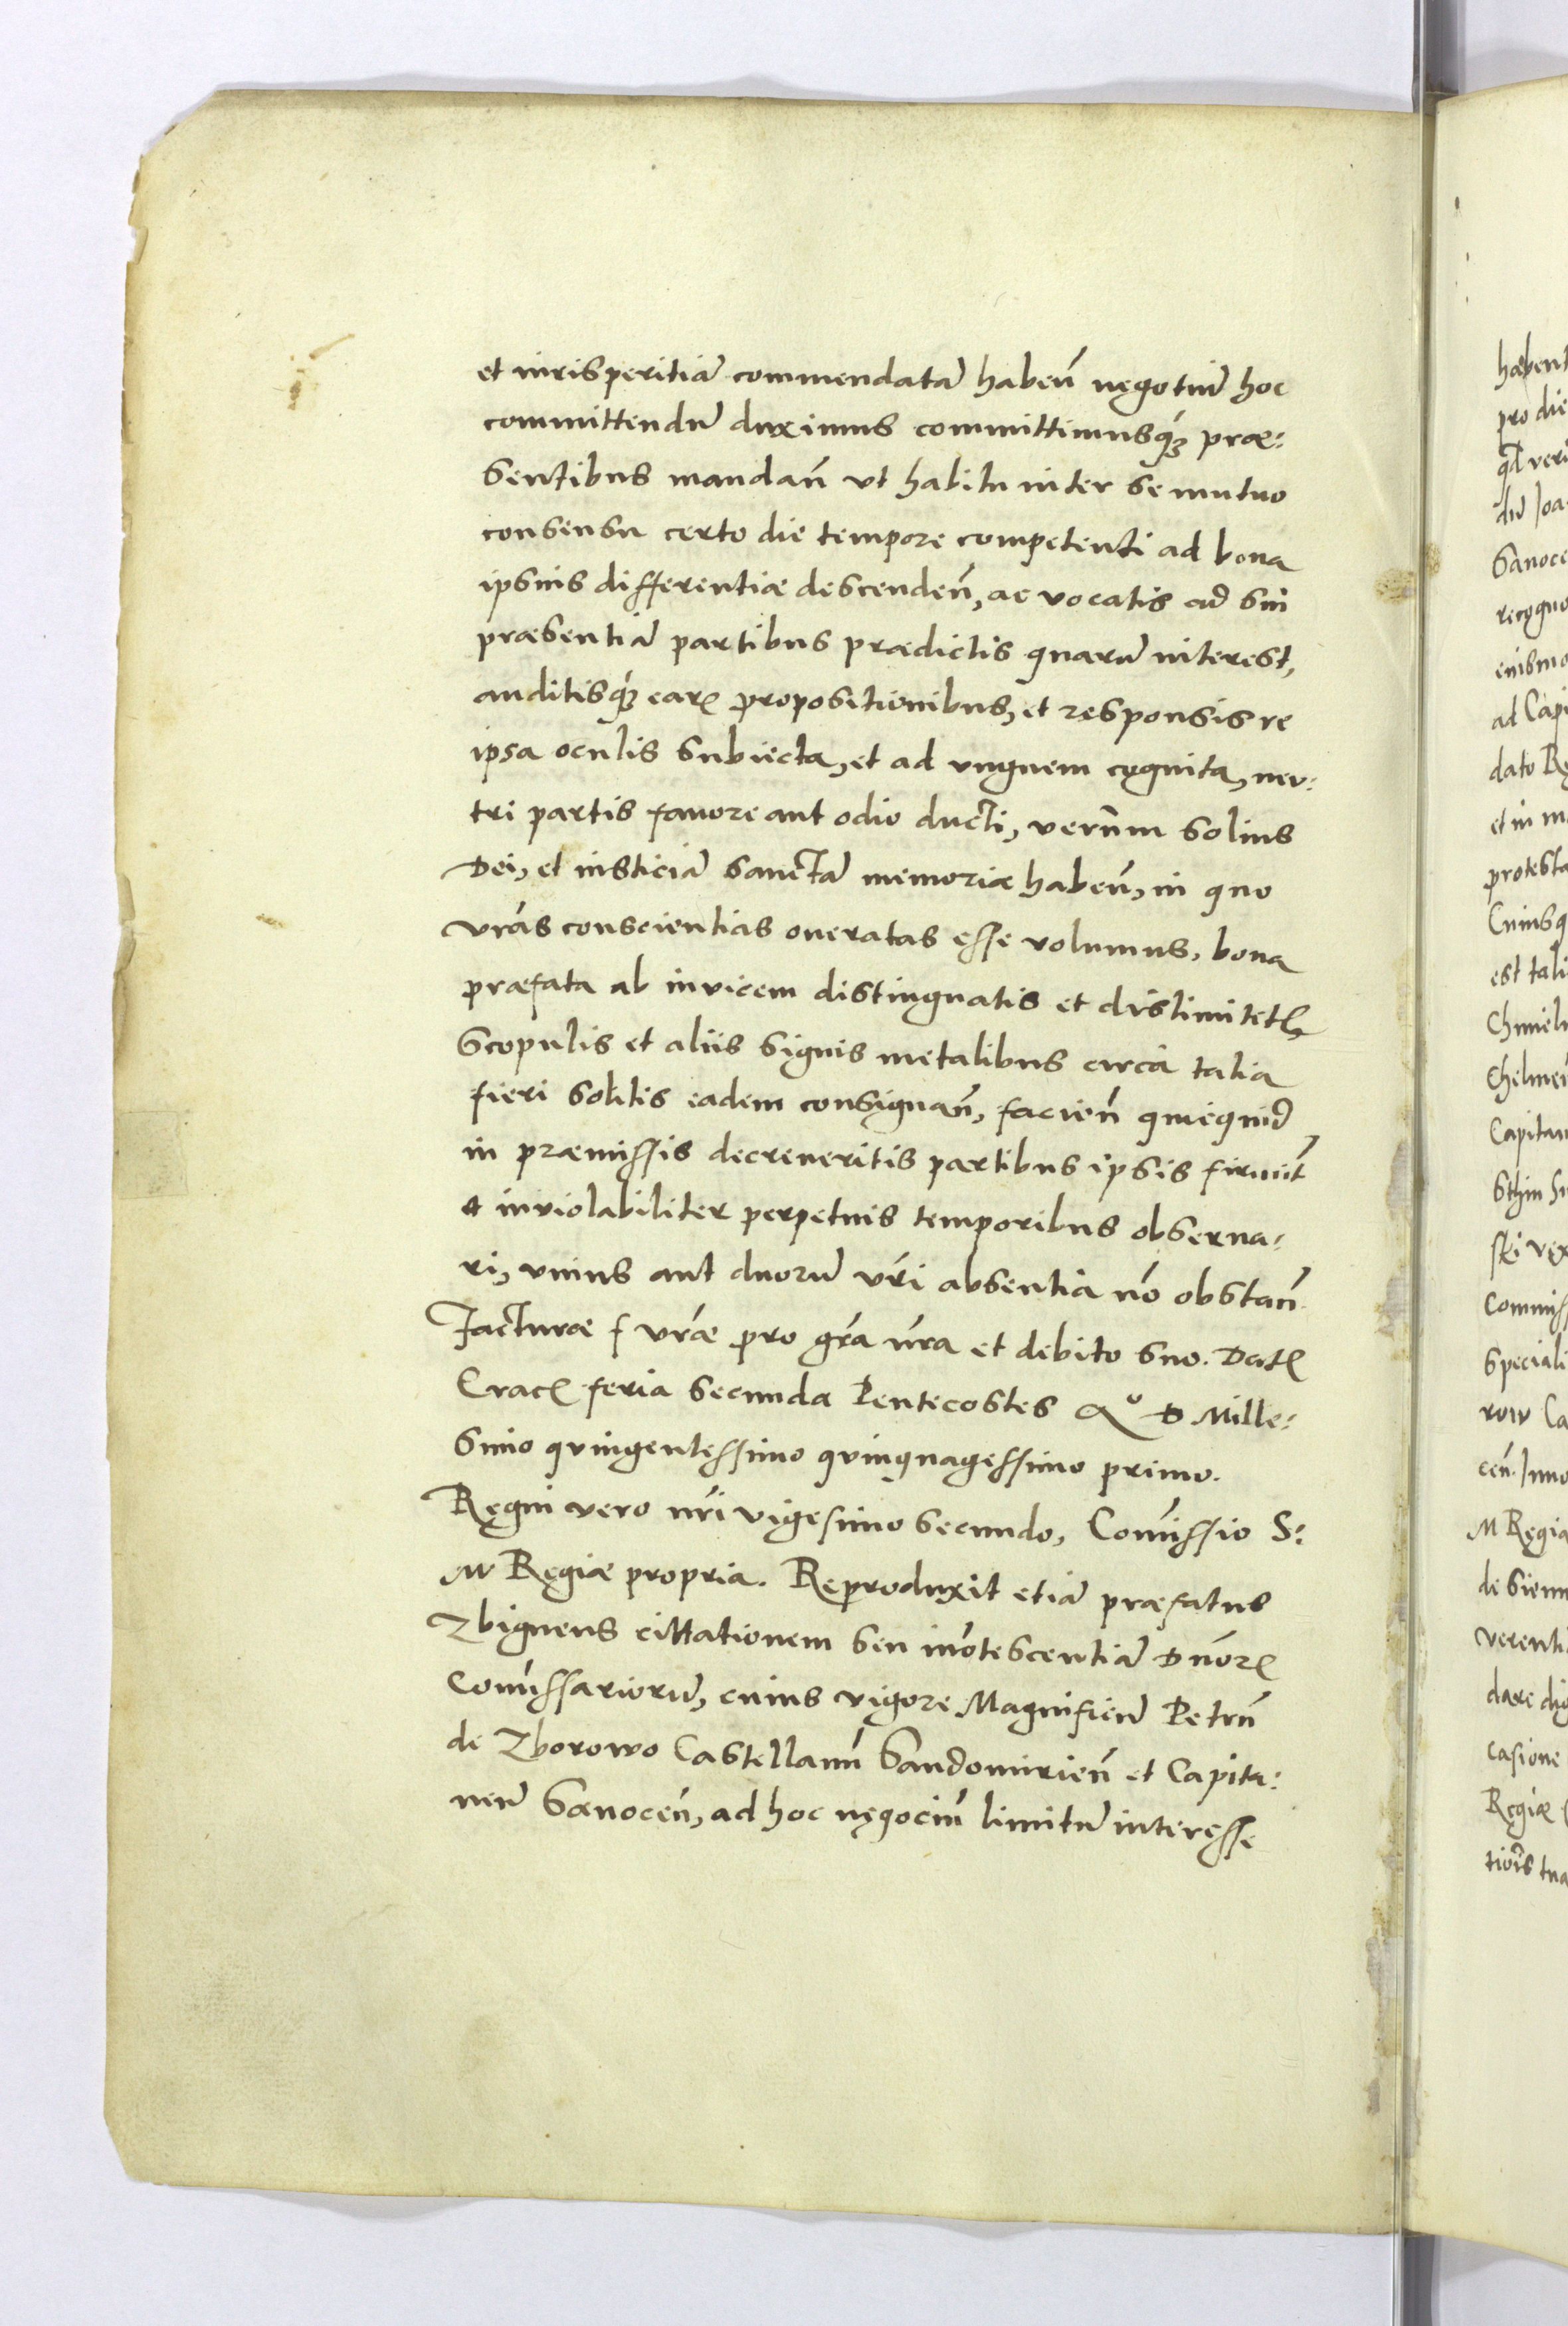 et iurisperitiā commendatā habeñ negotiū hoc
committendū duximus committimusq́ȝ præ:
sentibus mandañ vt habitu inter se mutuo
consensu certo die tempore competenti ad bona
ipsius differentiæ descendeñ, ac vocatis ad sui
præsentiā partibus prædictis quarū interest,
auditisq́ȝ earꝝ propositionibus, et responsis re
ipsa oculis subiecta, et ad vnguem cognita, neu:
tri partis fauore aut odio ducti, verum solius
Dei, et iusticiā sanctā memoriæ habeñ, in quo
vrās conscientias oneratas esse volumus, bona
præfata ab invicem distinguatis et dislimitetis
Scopulis et aliis signis metalibus circa talia
fieri solitis eadem consignañ, facieñ quicquid
in præmissis decreueritis partibus ipsis firmit̃
& inviolabiliter perpetuis temporibus obserua:
ri, vnius aut duorū vrī absentia nō obstañ.
Facturæ f vræ pro grā nrā et debito suo. Datꝝ
Cracꝝ feria secunda Pentecostes Aº D Mille:
simo quingentessimo quinquagessimo primo.
Regni vero nrī vigesimo secundo, Com̄issio S:
M Regiæ propria. Reproduxit etiā præfatus
Zbigneus cittationem seu iñotescentiā Dñorꝝ
Com̄issariorū, cuius vigore Magnificū Petrū
de Zborowo Castellanū Sandomirieñ et Capita:
neū Sanoceñ, ad hoc negociū limitū interesse
habent
pro die
Sanoce
recogno
ad Capi
dato Re
et in m
protesta
Cuiusq
est tali
Chmiel
Chelmeñ
Capitan
Commiss
speciali
row Ca
M Regia
de Sienn
verenti
dare dig
casione
Regiæ